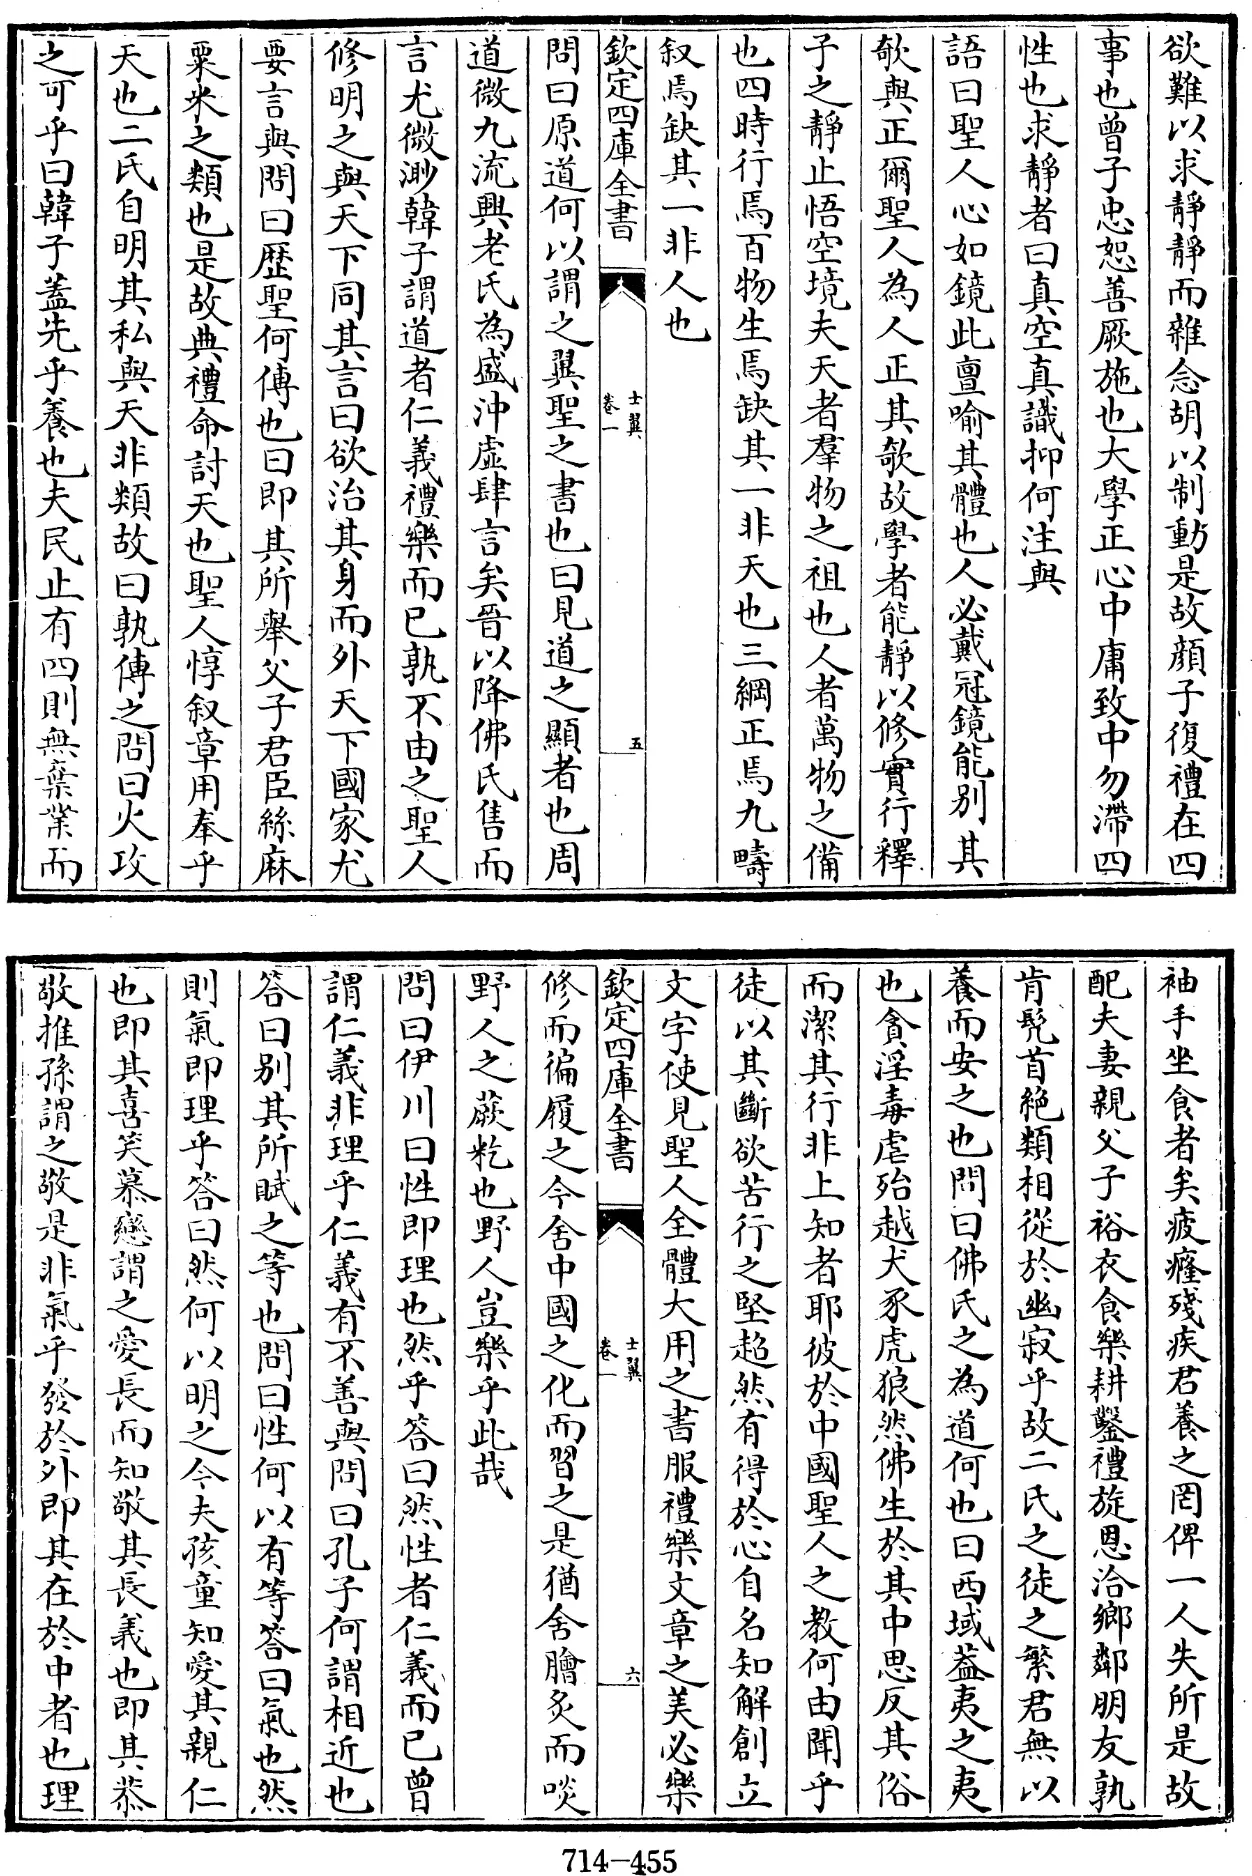 欲難以求靜靜而雜念胡以制動是故顔子復禮在四
事也曾子忠恕善厥施也大學正心中庸致中勿滯四
性也求靜者曰真空真識抑何注與
語曰聖人心如鏡此亶喻其體也人必戴冠鏡能别其
欹與正爾聖人為人正其欹故學者能靜以修實行釋
子之靜止悟空境夫天者羣物之祖也人者萬物之備
也四時行焉百物生焉缺其一非天也三綱正焉九疇
叙焉缺其一非人也
欽定四庫全書
士翼
卷一
五
問曰原道何以謂之翼聖之書也曰見道之顯者也周
道微九流興老氏為盛沖虚肆言矣晉以降佛氏售而
言尤微渺韓子謂道者仁義禮樂而已孰不由之聖人
修明之與天下同其言曰欲治其身而外天下國家尤
要言與問曰歴聖何傳也曰即其所舉父子君臣絲麻
粟米之類也是故典禮命討天也聖人惇叙章用奉乎
天也二氏自明其私與天非類故曰孰傳之問曰火攻
之可乎曰韓子蓋先乎養也夫民止有四則無棄業而
袖手坐食者矣疲癃殘疾君養之罔俾一人失所是故
配夫妻親父子裕衣食樂耕鑿禮旋恩洽鄉鄰朋友孰
肯髡首絶類相從於幽寂乎故二氏之徒之繁君無以
養而安之也問曰佛氏之為道何也曰西域葢夷之夷
也貪淫毒虐殆越犬豕虎狼然佛生於其中思反其俗
而潔其行非上知者耶彼於中國聖人之教何由聞乎
徒以其斷欲苦行之堅超然有得於心自名知解創立
文字使見聖人全體大用之書服禮樂文章之美必樂
欽定四庫全書
士翼
卷一
六
修而徧履之今舍中國之化而習之是猶舍膾炙而啖
野人之蕨籺也野人豈樂乎此哉
問曰伊川曰性即理也然乎答曰然性者仁義而已曾
謂仁義非理乎仁義有不善與問曰孔子何謂相近也
答曰别其所賦之等也問曰性何以有等答曰氣也然
則氣即理乎答曰然何以明之今夫孩童知愛其親仁
也即其喜笑慕戀謂之愛長而知敬其長義也即其恭
敬推孫謂之敬是非氣乎發於外即其在於中者也理
714-455